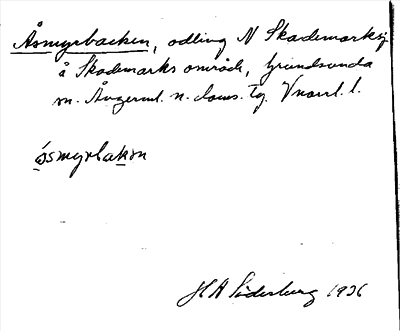 Åsmyrbacken, odling N Skademarksj
å Skademarks område, Grundsunda
sn. Ångerml. n. doms. tg. Vnorrl. l.
ósmyrbakɒn
H A Söderberg 1936